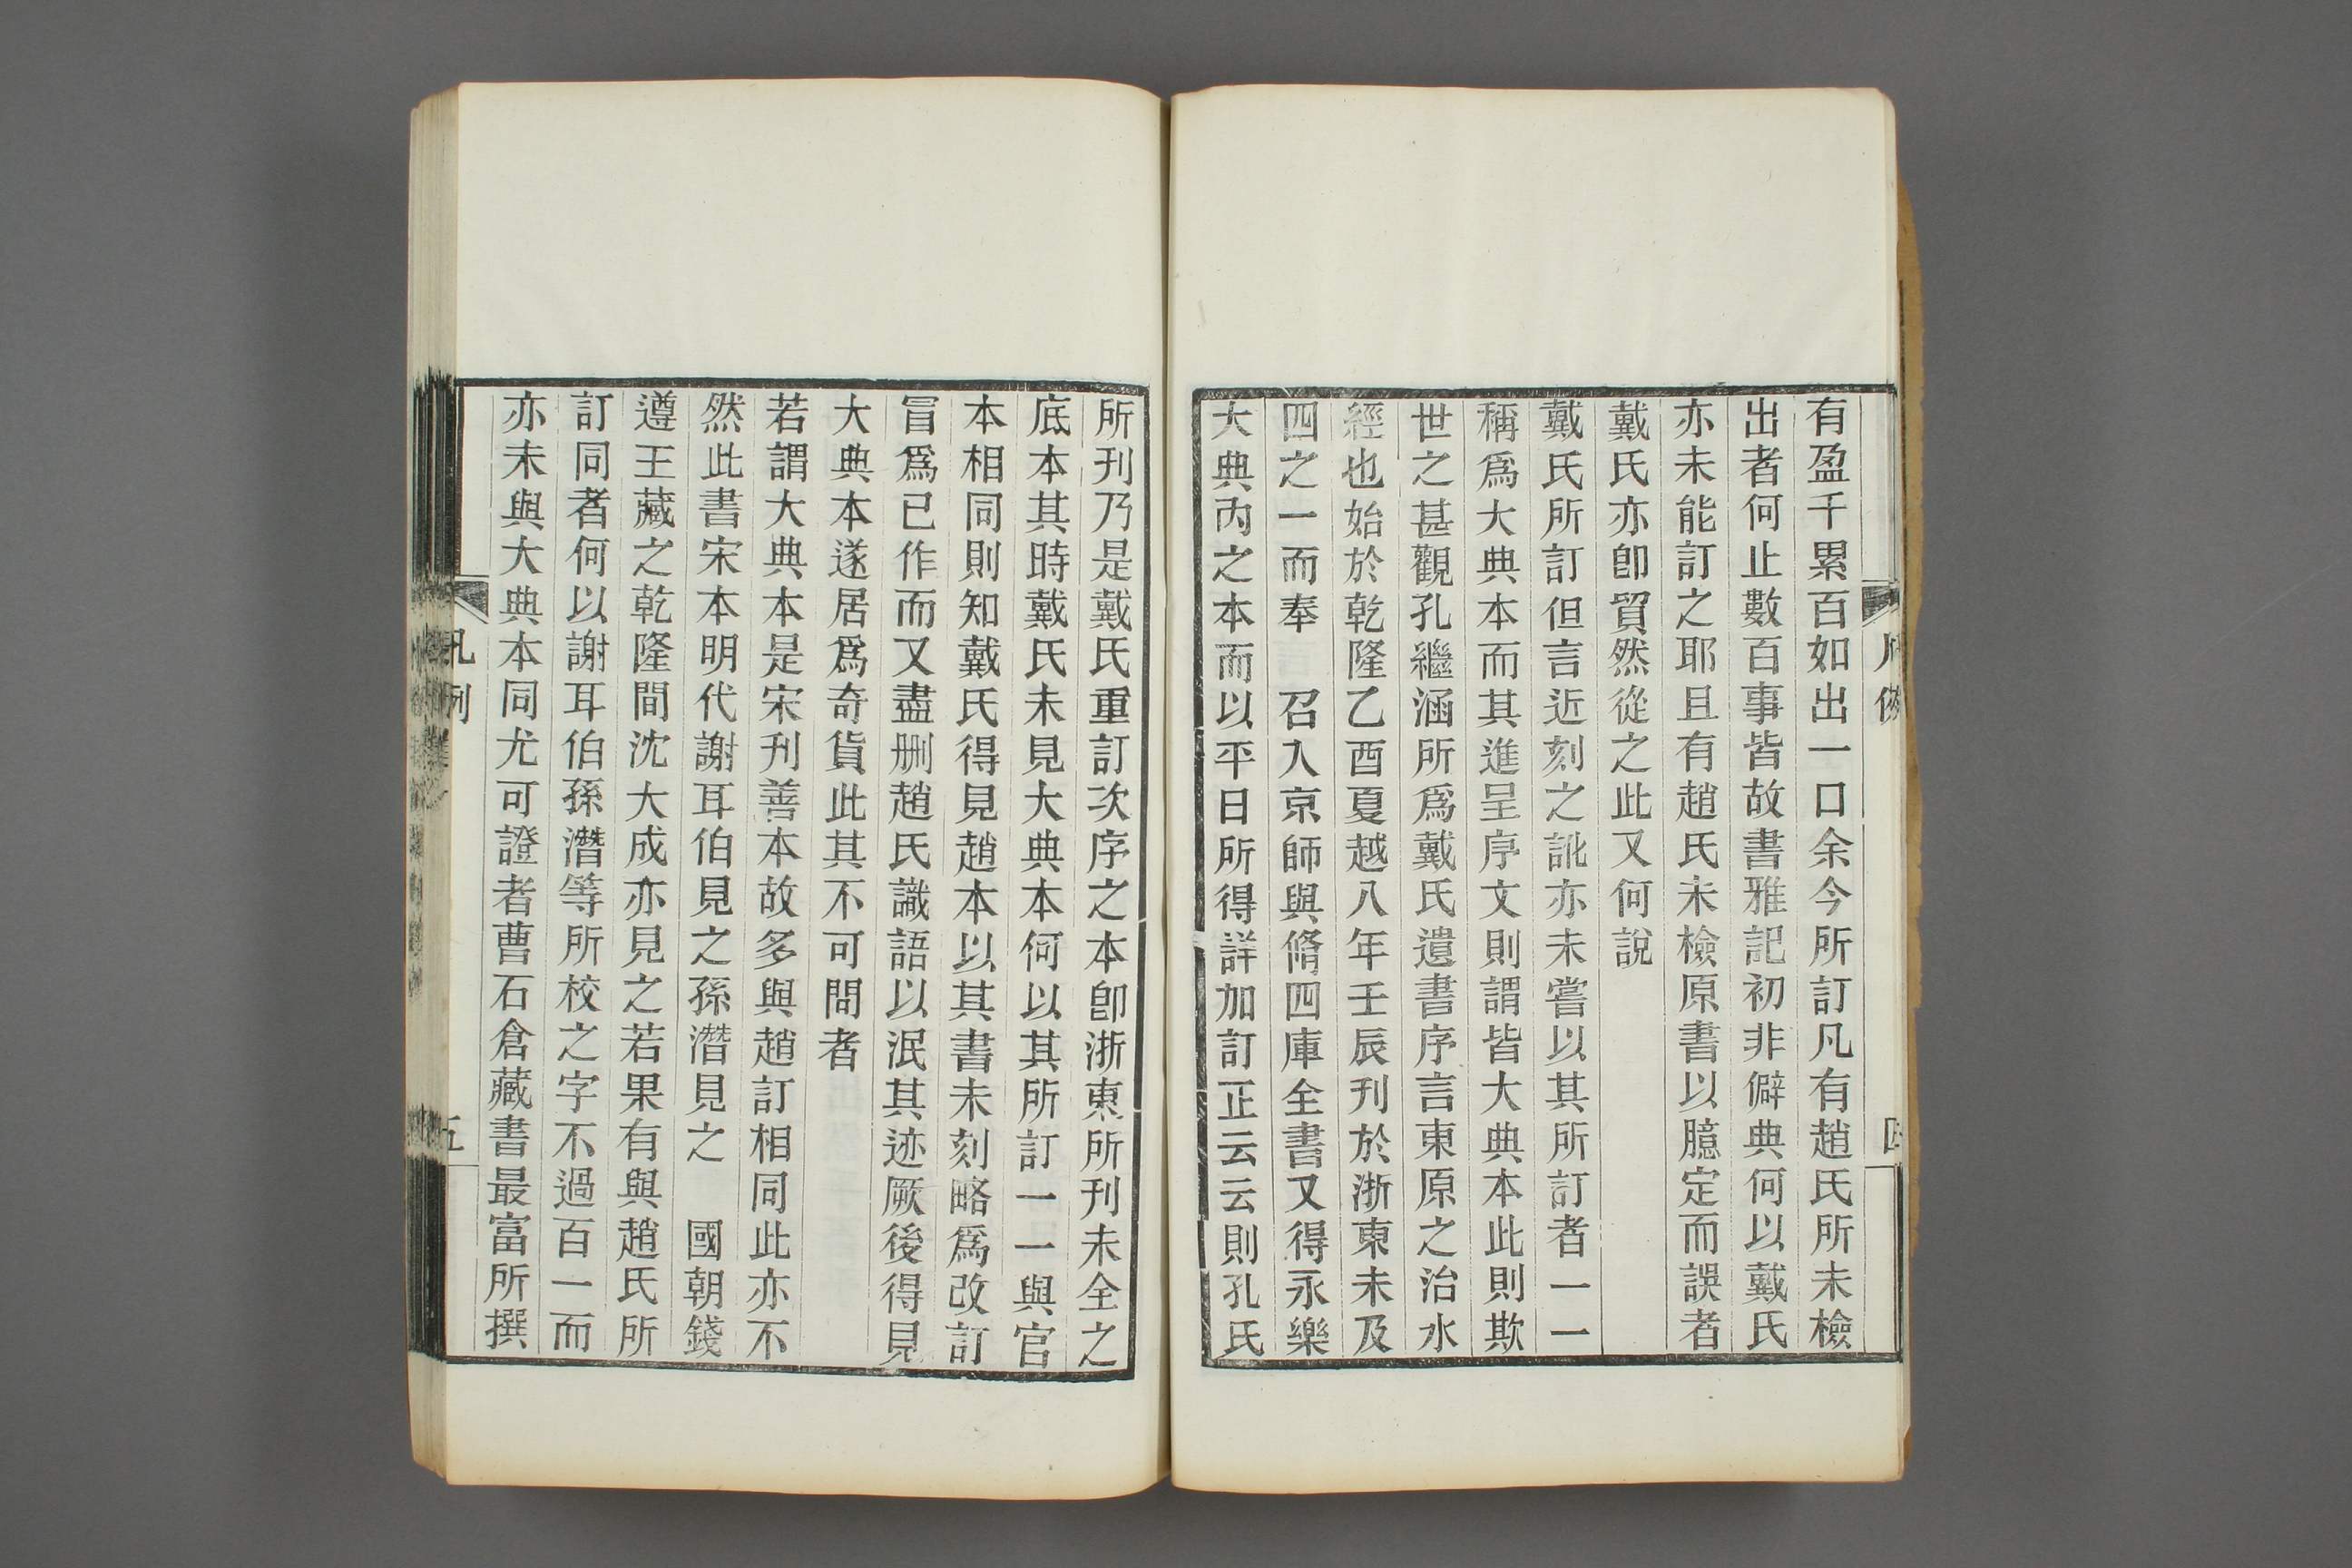 有盈千累百如出一口余今所訂凡有趙氏所未檢
出者何止數百事皆故書雅記初非僻典何以戴氏
亦未能訂之耶且有趙氏未檢原書以臆定而誤者
戴氏亦卽貿然從之此又何說
戴氏所訂但言近刻之訛亦未嘗以其所訂者一一
稱爲大典本而其進呈序文則謂皆大典本此則欺
世之甚觀孔繼涵所爲戴氏遺書序言東原之治水
經也始於乾隆乙酉夏越八年壬辰刊於浙東未及
四之一而奉　召入京師與脩四庫全書又得永樂
大典內之本而以平日所得詳加訂正云云則孔氏
所刊乃是戴氏重訂次序之本卽浙東所刊未全之
底本其時戴氏未見大典本何以其所訂一一與官
本相同則知戴氏得見趙本以其書未刻略爲改訂
冒爲已作而又盡刪趙氏識語以泯其迹厥後得見
大典本遂居爲奇貨此其不可問者
若謂大典本是宋刊善本故多與趙訂相同此亦不
然此書宋本明代謝耳伯見之孫潛見之　國朝錢
遵王藏之乾隆間沈大成亦見之若果有與趙氏所
訂同者何以謝耳伯孫潛等所校之字不過百一而
亦未與大典本同尤可證者曹石倉藏書最富所撰
凡例
五